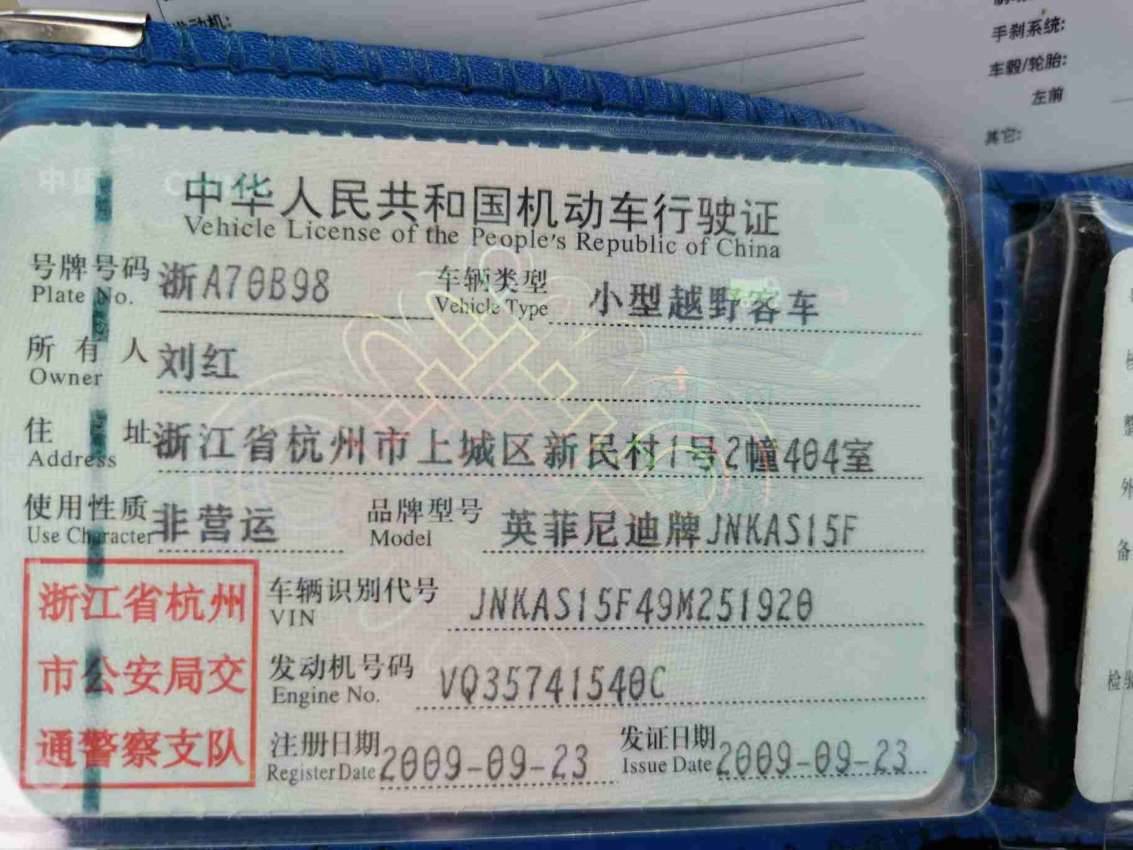 发动机:
手刹系统:
车毂/轮胎:
左前
其它:
中华人民共和国机动车行驶证
Vehicle License of the People's Republic of China
号牌号码 浙A70B98 车辆类型 小型越野客车
Plate No. Vehicle Type
所有人 刘红
Owner
住址 浙江省杭州市上城区新民村1号2幢404室
Address
使用性质 非营运 品牌型号 英菲尼迪牌JNKAS15F
Use Character Model
浙江省杭州
市公安局交
通警察支队
车辆识别代号 JNKAS15F49M251920
VIN
发动机号码 VQ35741540C
Engine No.
注册日期 2009-09-23 发证日期 2009-09-23
Register Date Issue Date
外
备
检验